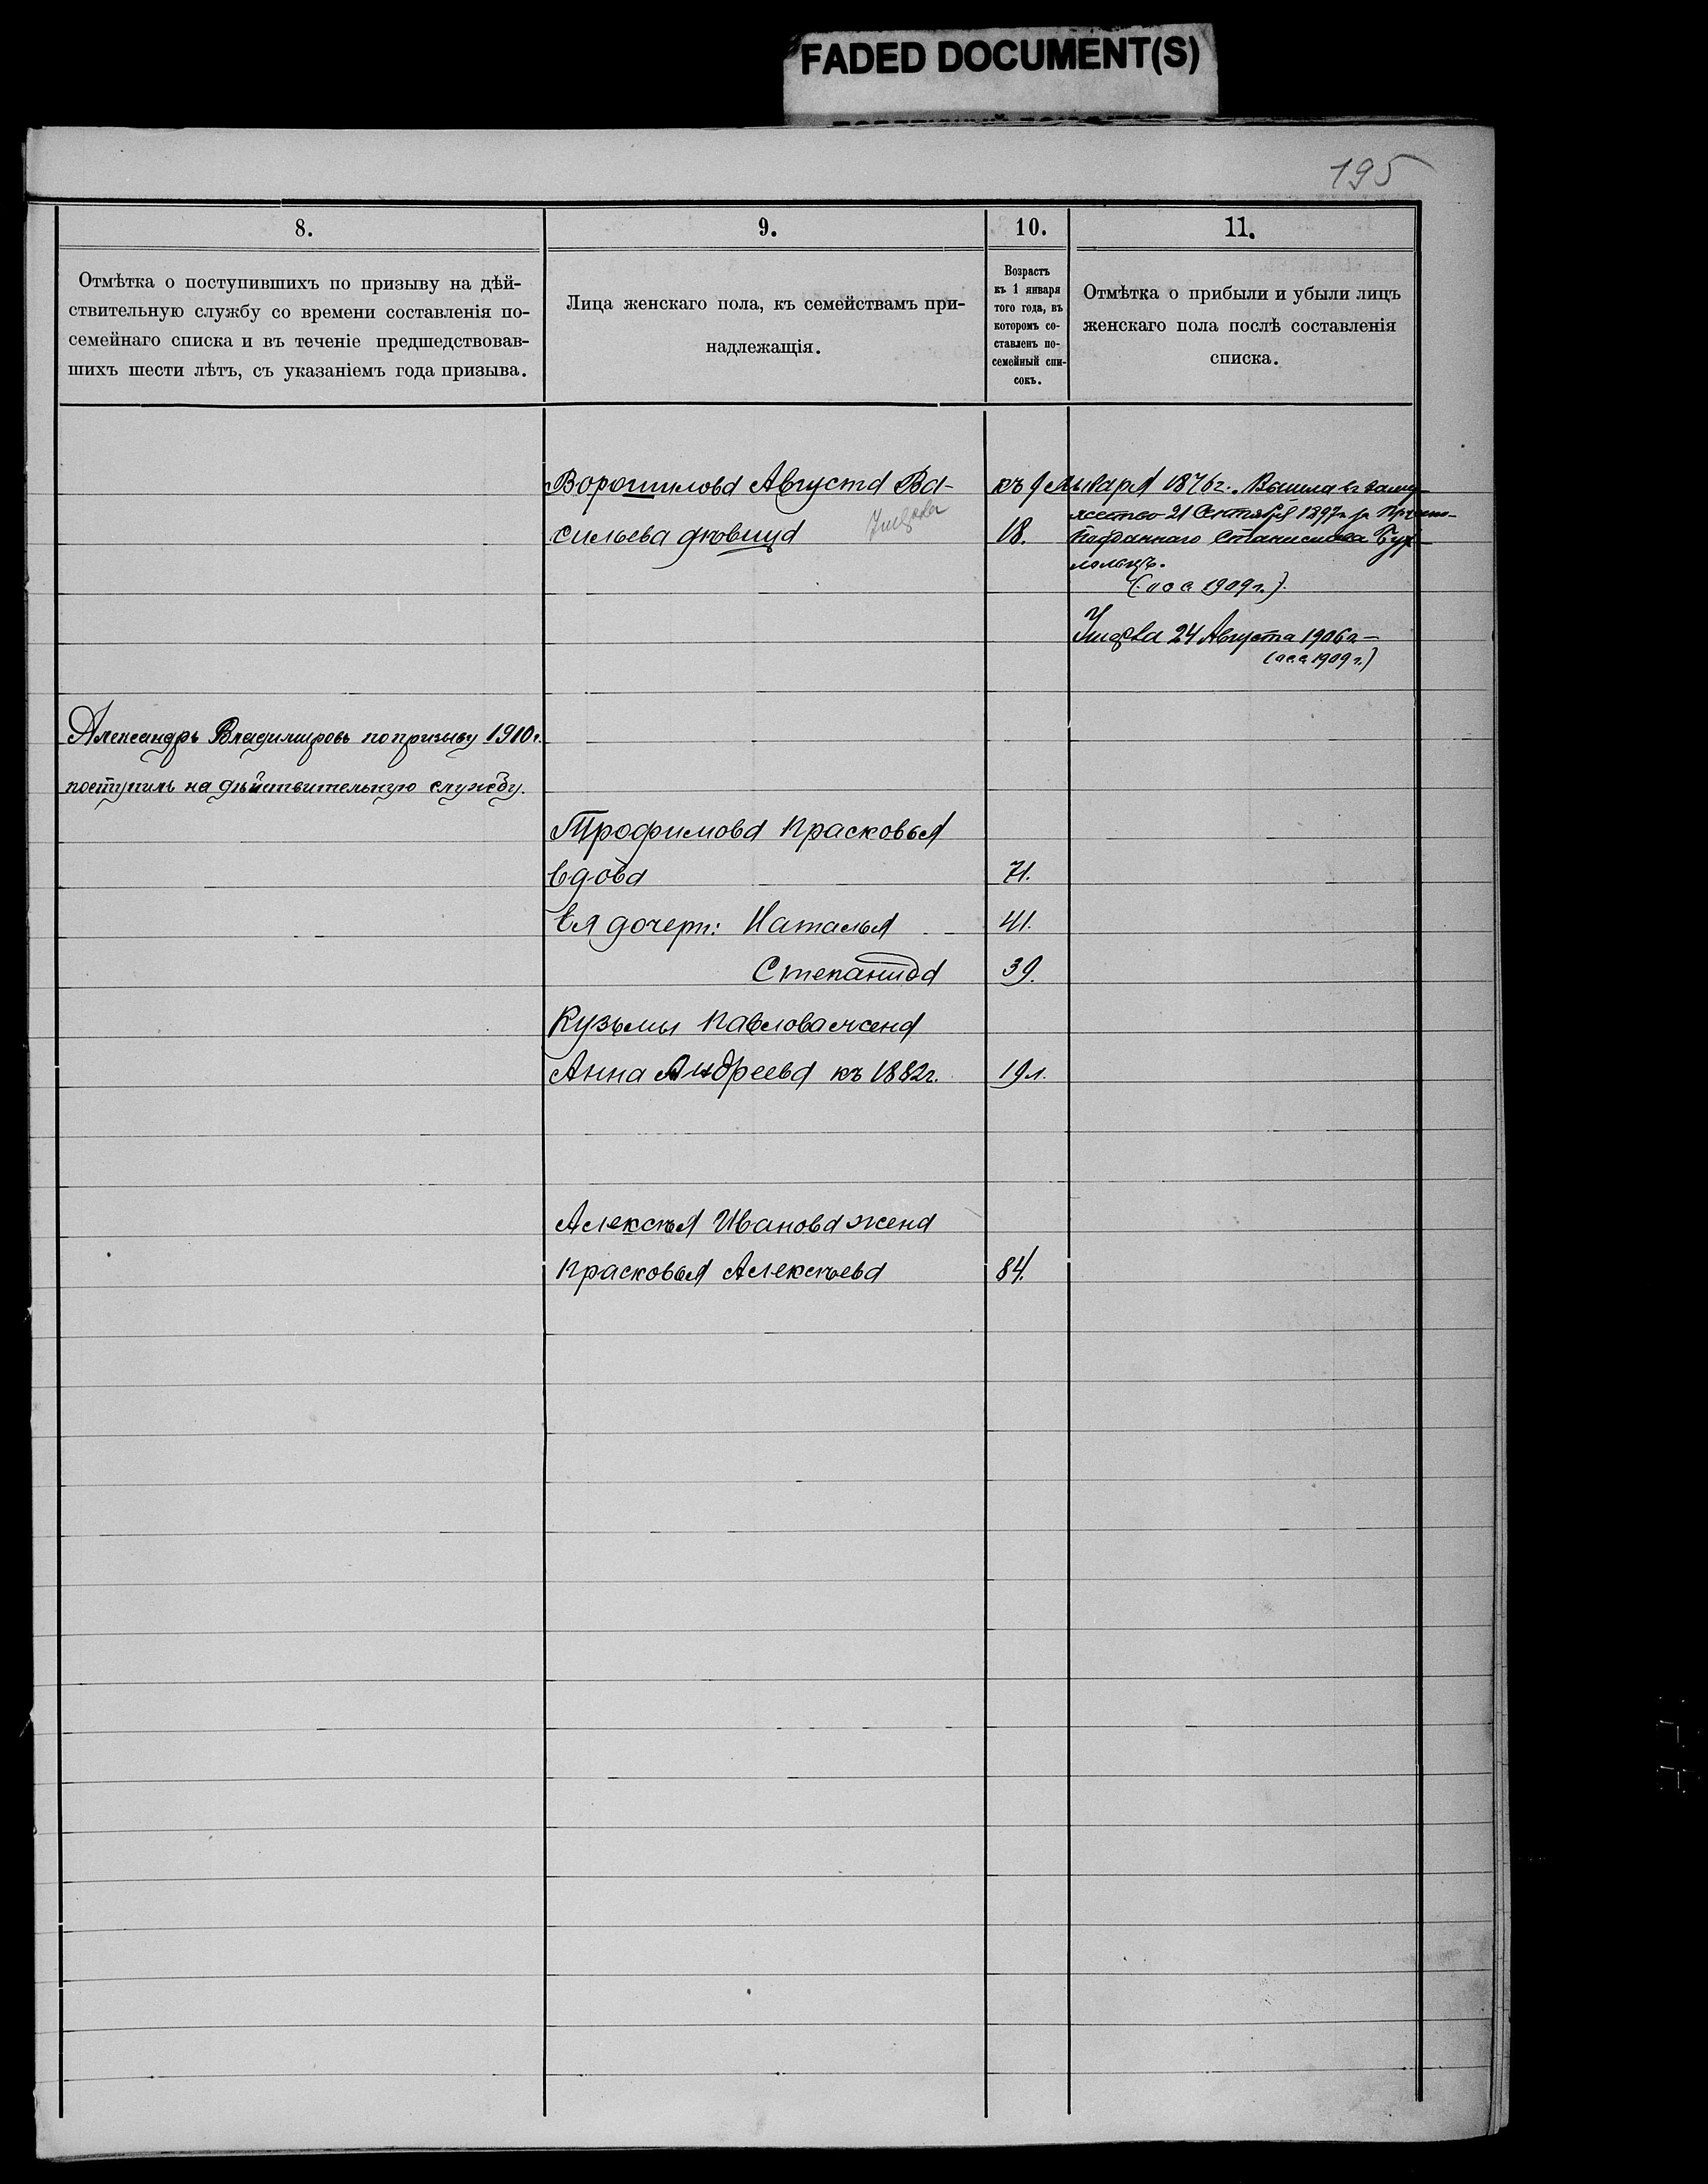 FADED DOCUMENT(S)
195
8.
9.
10.
11.
Отмѣтка о поступившихъ по призыву на дѣй-
ствительную службу со времени составленія по-
семейнаго списка и въ теченіе предшедствовав-
шихъ шести лѣтъ, съ указаніемъ года призыва.
Лица женскаго пола, къ семействамъ при-
надлежащія.
Возрастъ
къ 1 января
того года, въ
которомъ со-
ставленъ по-
семейный спи-
сокъ.
Отмѣтка о прибыли и убыли лицъ
женскаго пола послѣ составленія
списка.
Ворошилова Августа Ва-
сильева дѣвица
Умерла
къ 1 Января 1876г. Вышла въ заму-
жество 21 Сентября 1897г за
18.
Станислава
1909 г.)
Умерла 24 Августа 1906г
1909 г.)
Александръ Владимировъ по призыву 1910г.
поступилъ на дѣйствительную службу.
Трофимова Прасковья
вдова
71.
Ея дочери: Наталья
41.
Степанида
39.
Кузьмы Павлова жена
Анна Андреева къ 1882г.
19л.
Алексѣя Иванова жена
Прасковья Алексѣева
84.